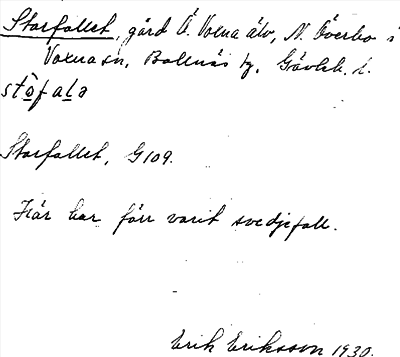 Storfallet, gård Ö. Voxna älv, N. Överbo i
Voxna sn, Bollnäs tg, Gävleb. l.
stò̱faḻa
Storfallet, G109.
Här har förr varit svedjefall.
Erik Eriksson 1930.